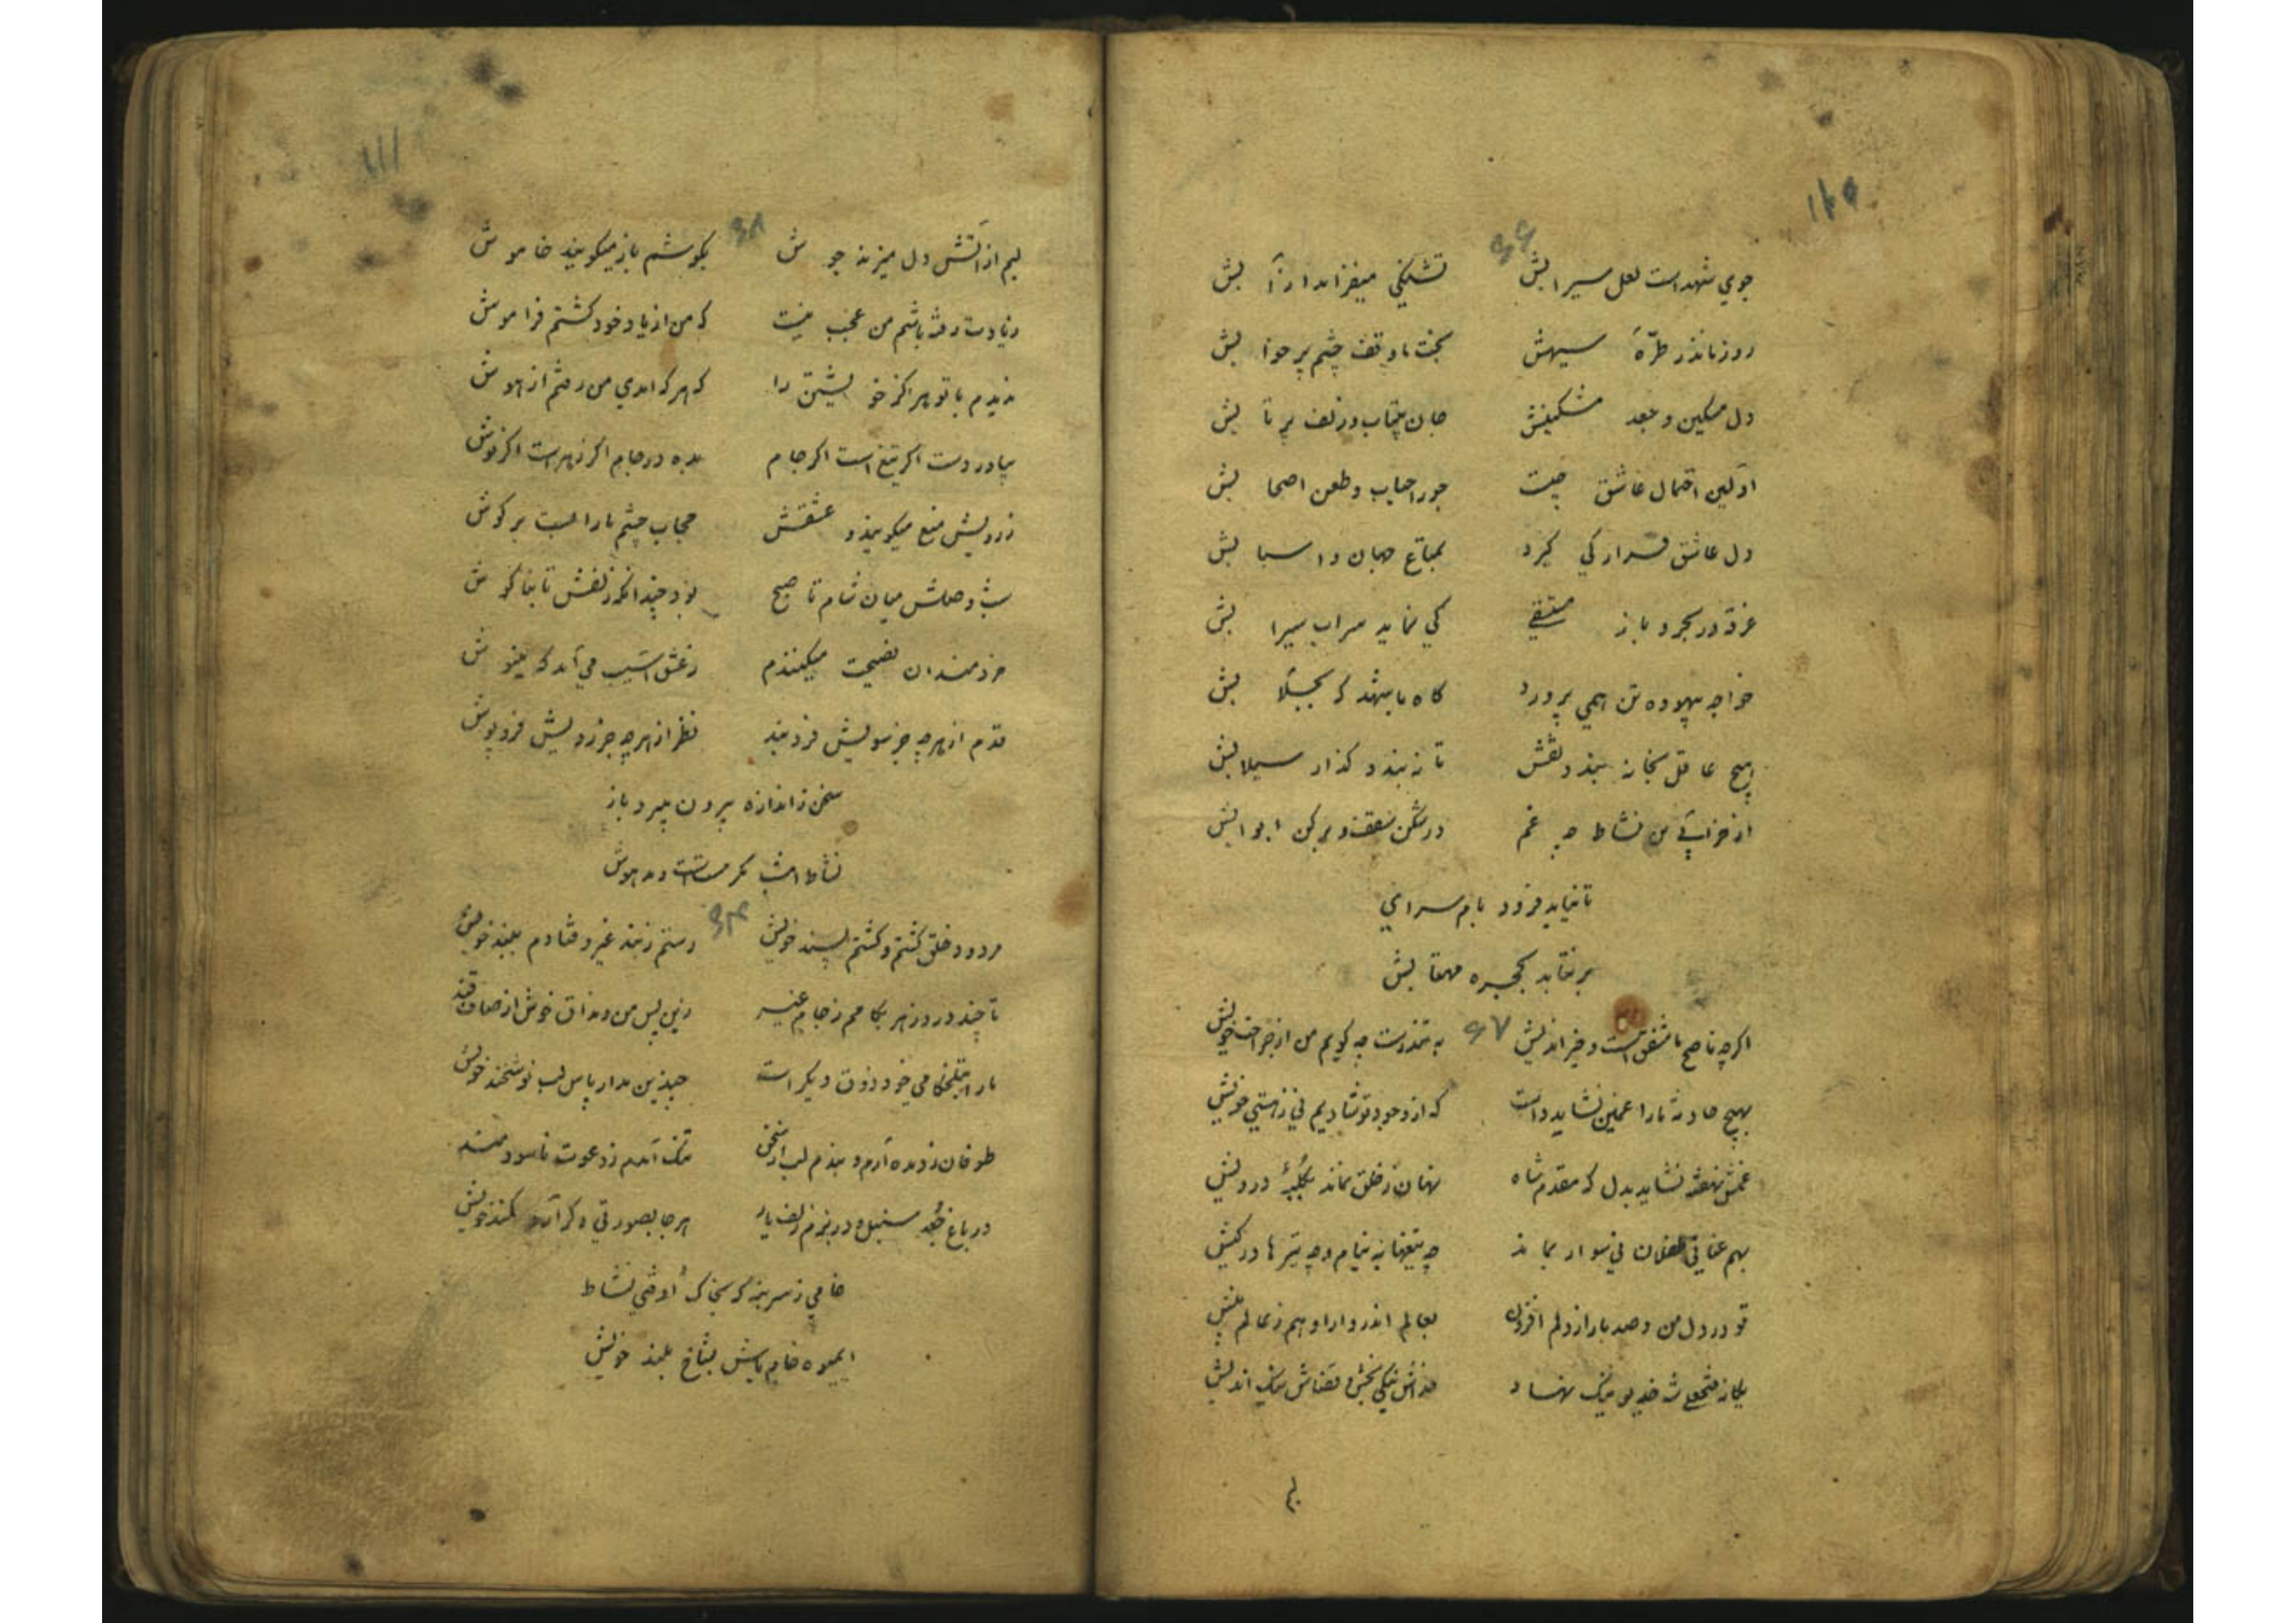 جوي شهد است لعل سيرابش تشنكي ميفزايد از آبش
روز ما در طرّهٔ سيهش بخت ما وقف چشم پر خوابش
دل مسكين و جعد مشكينش جان بيتاب و زلف پر تابش
اولين احتمال عاشق چيست جور احباب و طعن اصحابش
دل عاشق قرار كي كيرد بمتاع جهان و اسبابش
غرقه در بحر و باز مستسقي كي نمايد سراب سيرابش
خواجه بيهوده تن همي پرورد كاه ما ميهشد كه بجلابش
هيچ عاقل بخانه بيند و نقش تا نه بندد كذار سيلابش
از خرابي من نشاط چه غم در شكن سقف و بركن ابوابش
تا نيايد فرود بام سراي
بر نتابد بحجره مهتابش
۶۷
اكرچه ناصح ما مشفق است و خير انديش به تندرست چه كويم من از جراحت خويش
بهيچ حادثه ما را غمين نشايد داشت كه از وجود تو شاديم ني ز هستي خويش
غمش نهفته نشايد بدل كه مقدم شاه نهان ز خلق نماند بكلبهٔ درويش
بهم عناني طفلان ني سوار بماند چه تيغها به نيام و چه تيرها در كيش
تو در دل من و صد بار از دلم افزون بعالم اندر و او هم ز عالم بيش
يكانه فتحعلي شه خديو نيك نهاد
لبم
۱۱۱
۶۸
لبم از آتش دل ميزند جوش بكوشم باز ميكويند خاموش
زيادت رفته باشم من عجب نيست كه من از ياد خود كشتم فراموش
نديدم با تو هركز خويشتن را كه هركه امدي من رفتم از هوش
بياور دست اكر تيغ است اكر جام بده در جام اكر زهر است اكر نوش
ز رويش منع ميكويند و عشقش حجاب چشم ما را بست بر كوش
شب وصلش ميان شام تا صبح بود چندانكه زلفش تا بناكوش
خردمندان نصيحت ميكنندم ز عشق اسيب مي آيد كه مينوش
قدم از هرچه جز سويش فرو بند نظر از هرچه جز رويش فرو پوش
سخن ز اندازه بيرون ميبرد باز
نشاط امشب مكر مست است و مدهوش
مردود خلق كشتم و كشتم پسند خويش رستم ز بند غير و فتادم ببند خويش
تا چند در دوزهر بكامم ز جام غير زين پس من و مذاق خوش از صاف قند
ما را بتلخكامي خود ذوق ديكر است چندين مدار پاس لب نوشخند خويش
طوفان ز ديده آرم و بندم لب از سخن تنك آمدم ز دعوت ناسودمند
در باغ جعد سنبل و در بزم زلف يار هر جا بصورتي دكر آرد كمند خويش
خامي ز سر بنه كه بخاك اوفتي نشاط
ايميوه خام باش بشاخ بلند خويش